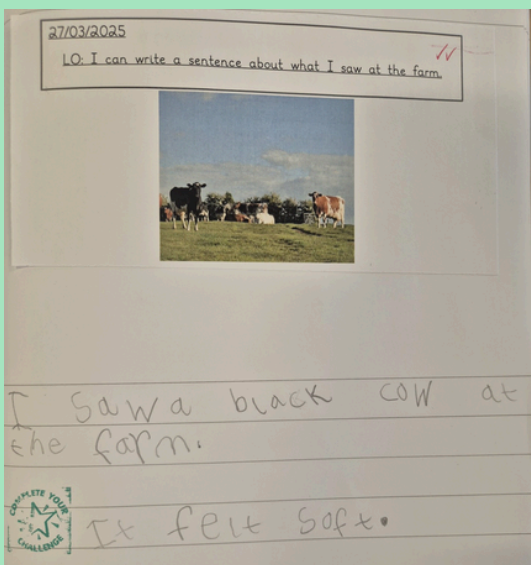 27/03/2025
LO: I can write a sentence about what I saw at the farm.
I sawa black cow at
the farm.
COMPLETE YOUR
CHALLENGE
It felt soft.